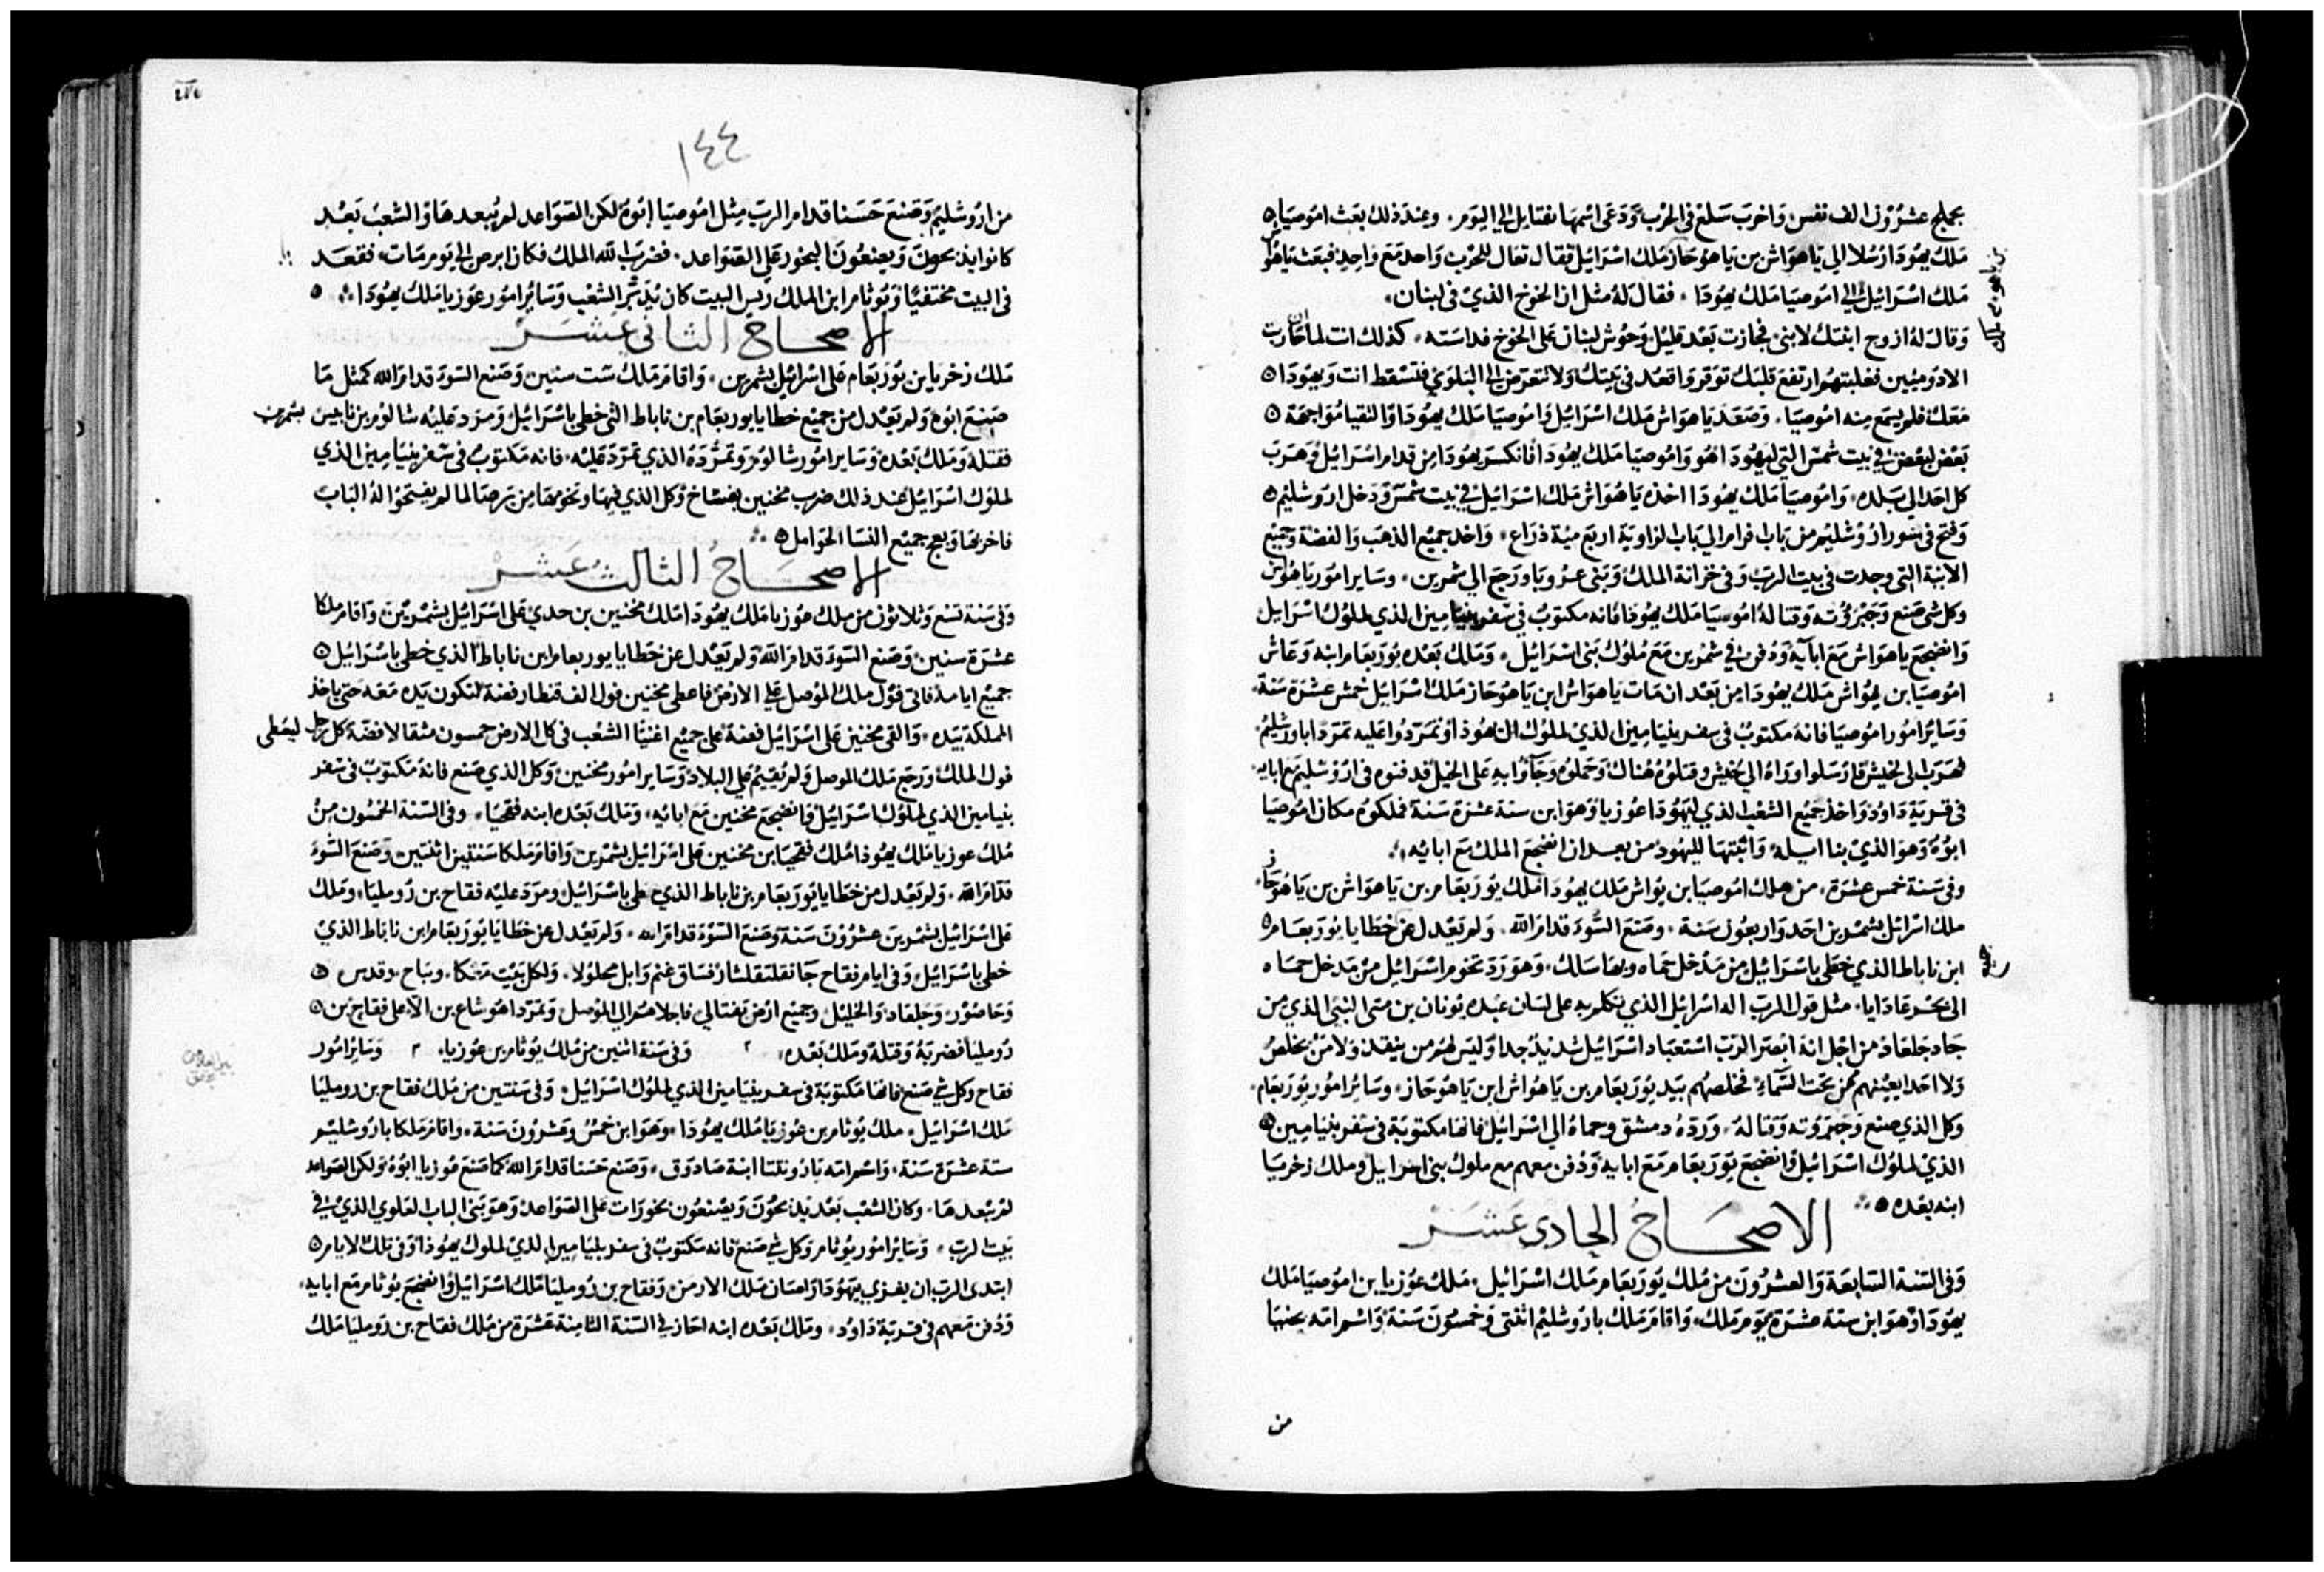 بجملح عشرون الف نفس واخرب سلع في الحرب ودعى اسمها نفتايل الى اليوم وعند ذلك بعث اموصيا
ملك يهودا رسلا الي ياهواش بن ياهوحاز ملك اسرائيل فقال تعال للحرب واحد مع واحد فبعث ياهواش
ملك اسرائيل الي اموصيا ملك يهودا فقال له مثل ان الخوخ الذي في لبنان
وقال له ازوج ابنتك لابني فجازت بعد قليل وحوش لبنان على الخوخ فداسته كذلك انت لما حاربت
الادوميين فغلبتهم ارتفع قلبك توقر واقعد في بيتك ولا تتعرض الى البلوي فتسقط انت ويهودا
معك فلم يسمع منه اموصيا وصعد ياهواش ملك اسرائيل واموصيا ملك يهودا والتقيا مواجهة
بعض لبعض في بيت شمس التي ليهودا هو واموصيا ملك يهودا فانكسر يهودا من قدام اسرائيل وهرب
كل احد الي بلده واموصيا ملك يهودا اخذه ياهواش ملك اسرائيل في بيت شمس ودخل اروشليم
وفتح في سور اروشليم من باب فرام الي باب الزاوية اربع مية ذراع واخذ جميع الذهب والفضة وجميع
الانية التي وجدت في بيت الرب وفي خزانة الملك وبني عرويا ورجع الي شمرين وساير امور ياهواش
وكل شي صنع وجبروته وقتاله اموصيا ملك يهودا فانه مكتوب في سفر بنيامين الذي لملوك اسرايل
وانضجع ياهواش مع ابآيه ودفن في شمرين مع ملوك بني اسرائيل وملك بعده يوربعام ابنه وعاش
اموصيا بن يواش ملك يهودا من بعد ان مات ياهواش ابن ياهوحاز ملك اسرائيل خمس عشرة سنة
وساير امور اموصيا فانه مكتوب في سفر بنيامين الذي لملوك ال يهوذا وتمردوا عليه تمردا باورشليم
فهرب الى لخيش فارسلوا وراه الي لخيش وقتلوه هناك وحملوه وجآوا به على الخيل فدفنوه في اروشليم مع ابايه
في قرية داود واخذ جميع الشعب الذي ليهودا عوزيا وهو ابن ستة عشرة سنة فملكوه مكان اموصيا
ابوه وهو الذي بنا ايله واثبتها لليهود من بعد ان انضجع الملك مع ابائيه
وفي سنة خمس عشرة من ملك اموصيا بن يواش ملك يهودا ملك يوربعام بن ياهواش بن ياهوحاز
ملك اسرائيل بشمرين احد واربعون سنة وصنع السوء قدام الله ولم يعدل عن خطايا يوربعام
ابن ناباط الذي خطى باسرائيل من مدخل حماه وبها سلك وهو رد تخوم اسرائيل من مدخل حماه
الى بحر عادايا مثل قول الرب اله اسرائيل الذي تكلم به على لسان عبده يونان بن متى النبي الذي من
جاد جلعاد من اجل انه ابصر الرب استعباد اسرائيل شديد جدا وليس لهم من ينقذ ولا من يخلص
ولا احد ايعينهم ممن تحت السماء فخلصهم بيد يوربعام بن ياهواش ابن ياهوحاز وساير امور يوربعام
وكل الذي صنع وجبروته وقتاله ورده دمشق وحماه الي اسرائيل فانها مكتوبة في سفر بنيامين
الذي لملوك اسرائيل وانضجع يوربعام مع ابايه ودفن معهم مع ملوك بني اسرايل وملك زخريا
ابنه بعده
الاصحاح الحادي عشر
وفي السنة السابعة والعشرون من ملك يوربعام ملك اسرائيل ملك عوزيا بن اموصيا ملك
يهودا وهو ابن ستة عشرة يوم ملك واقام ملك باروشليم اثنتى وخمسون سنة واسم امه يحنيا
من
١٤٤
من اروشليم وصنع حسنا قدام الرب مثل اموصيا ابوه لكن الصواعد لم يبعدها والشعب بعد
كانوا يذبحون ويصنعون البخور على الصواعد فضرب الله الملك فكان ابرص الى يوم مات فقعد
في البيت مختفيا ويوثام ابن الملك ريس البيت كان يدبر الشعب وساير امور عوزيا ملك يهودا
الاصحاح الثاني عشر
ملك زخريا بن يوربعام على اسرائيل بشمرين واقام ملك ست سنين وصنع السوء قدام الله كمثل ما
صنع ابوه ولم يعدل من جميع خطايا يوربعام بن ناباط التي خطى باسرائيل ومرد عليه شالوم بن نابيس بشمرين
فقتله وملك بعده وساير امور شالوم وتمرده الذي تمرد عليه فانه مكتوب في سفر بنيامين الذي
لملوك اسرائيل عند ذلك ضرب مخنين بفساخ وكل الذي فيها وتخومها من ترصا لما لم يفتحوا له الباب
فاخربها وبعج جميع النسا الحوامل
الاصحاح الثالث عشر
وفي سنة تسع وثلاثون من ملك عوزيا ملك يهودا ملك مخنين بن حدي على اسرائيل بشمرين واقام ملكا
عشرة سنين وصنع السوء قدام الله ولم يعدل عن خطايا يوربعام ابن ناباط الذي خطى باسرائيل
جميع ايامه فاتى فول ملك الموصل على الارض فاعطى مخنين فول الف قنطار فضة لتكون يده معه حتى ياخذ
المملكة بيده والقى مخنين على اسرائيل فضة على جميع اغنيا الشعب في كل الارض خمسون مثقالا فضة كل رجل ليعطى
فول الملك ورجع ملك الموصل ولم يقيم على البلاد وساير امور مخنين وكل الذي صنع فانه مكتوب في سفر
بنيامين الذي لملوك اسرائيل فانضجع مخنين مع ابائيه وملك بعده ابنه فقحيا وفي السنة الخمسون من
ملك عوزيا ملك يهوذا ملك فقحيا بن مخنين على اسرائيل بشمرين واقام ملكا سنتين اثنتين وصنع السوء
قدام الله ولم يعدل من خطايا يوربعام بن ناباط الذي خطى باسرائيل ومرد عليه فقاح بن روملياء وملك
على اسرائيل بشمرين عشرون سنة وصنع السوء قدام الله ولم يعدل عن خطايا يوربعام ابن ناباط الذي
خطى باسرائيل وفي ايام فقاح جا تغلتفلشار فساق غنم وابل محلولا ولكل بيت معكا وبناح وقدس
وحاصور وجلعاد والخليل وجميع ارض نفتالي فاجلاهم الي الموصل وتمرد اهوشاع بن الا على فقاح بن
روملیا فضربه وقتله وملك بعده وفي سنة اثنين من ملك يوثام بن عوزيا وساير امور
فقاح وكل شي صنع فانها مكتوبة في سفر بنيامين الذي لملوك اسرائيل وفي سنتين من ملك فقاح بن روملیا
ملك اسرائيل ملك يوثام بن عوزيا ملك يهودا وهو ابن خمس وعشرون سنة واقام ملكا باروشليم
ستة عشرة سنة واسم امه ياروثلتا ابنة صادوق وصنع حسنا قدام الله كما صنع عوزيا ابوه ولكن الصواعد
لم يبعدها وكان الشعب بعد يذبحون ويصنعون بخورات على الصواعد وهو بنى الباب العلوي الذي في
بيت الرب وساير امور يوثام وكل شي صنع فانه مكتوب في سفر بنيامين الذي لملوك يهوذا وفي تلك الايام
ابتدى الرب ان يغزي بيهودا رامان ملك الارمن وفقاح بن روملیا ملك اسرائيل وانضجع يوثام مع ابايه
ودفن معهم في قرية داود وملك بعده ابنه احاز في السنة الثامنة عشرة من ملك فقاح بن روملیا ملك